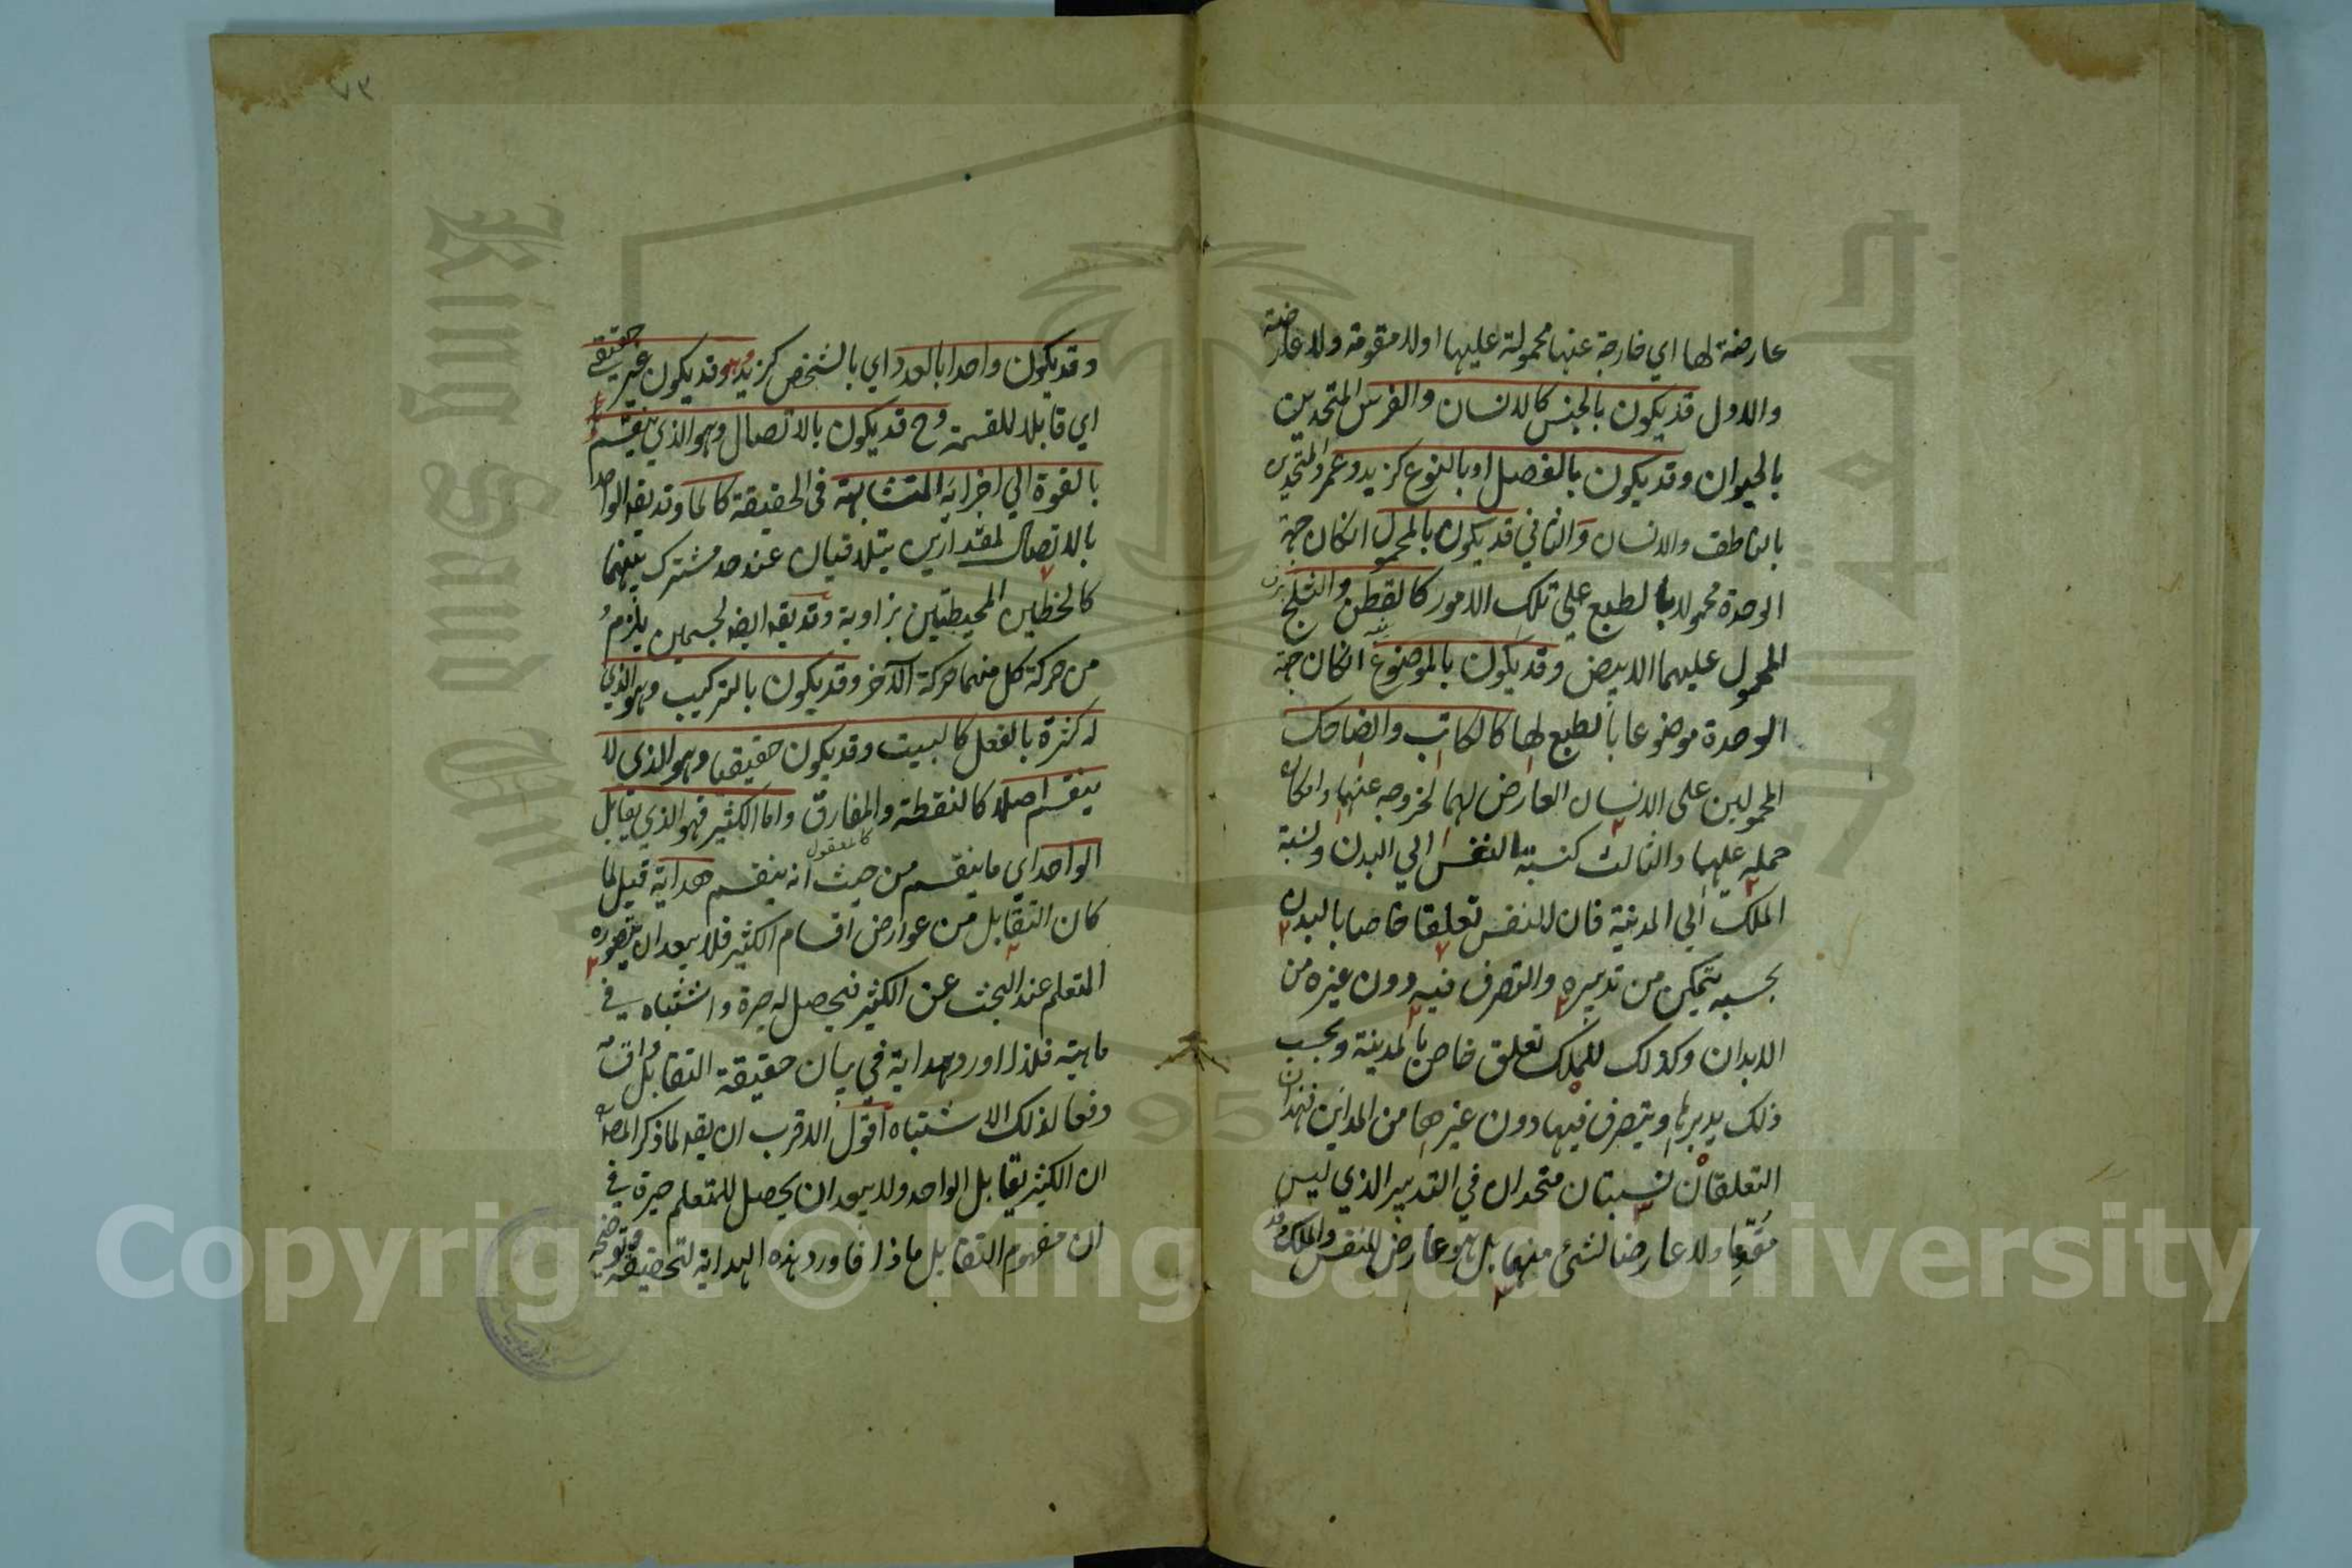 عارضة لها اي خارجة عنها محمولة عليها اولا مقومة ولا عارضة
والاول قد يكون بالجنس كالانسان والفرس المتحدين
بالحيوان وقد يكون بالفصل او بالنوع كزيد وعمرو المتحدين
بالناطق والانسان والثاني قد يكون بالمحمول انكان جهة
الوحدة محمولا بالطبع على تلك الامور كالقطن والثلج
المحمول عليهما الابيض وقد يكون بالموضوع انكان جهة
الوحدة موضوعا بالطبع لها كالكاتب والضاحك
المحمولين على الانسان العارض لهما لخروجه عنهما وامكان
حمله عليهما والثالث كنسبة النفس الي البدن ونسبة
الملك الي المدينة فان للنفس تعلقا خاصا بالبدن
بحسبه يتمكن من تدبيره والتصرف فيه دون غيره من
الابدان وكذلك للملك تعلق خاص بالمدينة وبحسب
ذلك يدبرها ويتصرف فيها دون غيرها من المداين فهذان
التعلقان نسبتان متحدان في التدبير الذي ليس
مقوما ولا عارضا لشئ منهما بل هو عارض للنفس والملك
وقد يكون واحدا بالعدد اي بالشخص كزيد وهو قد يكون غير حقيقي
اي قابلا للقسمة وح قد يكون بالاتصال وهو الذي ينقسم
بالقوة الي اجزايه المتشابهة في الحقيقة كالما وقد يقه الواحد
بالاتصال لمقدارين يتلاقيان عند حد مشترك بينهما
كالخطين المحيطين بزاوية وقد يقه ايضه لجسمين يلزم
من حركة كل منهما حركة الآخر وقد يكون بالتركيب وهو الذي
له كثرة بالفعل كالبيت وقد يكون حقيقيا وهو الذي لا
ينقسم اصلا كالنقطة والمفارق واما الكثير فهو الذي يقابل
الواحد اي ما ينقسم من حيث انه ينقسم هداية قيل لما
كان التقابل من عوارض اقسام الكثير فلا يبعد ان يتصوره
المتعلم عند البحث عن الكثير فيحصل له حيرة واشتباه في
ماهيته فلذا اورد هداية في بيان حقيقة التقابل واقسامه
دفعا لذلك الاشتباه اقول الاقرب ان يقه لما ذكر المصه
ان الكثير يقابل الواحد ولا يبعد ان يحصل للمتعلم حيرة في
ان مفهوم التقابل ماذا فاورد هذه الهداية لتحقيقه وتوضيحه
Copyright © King Saud University